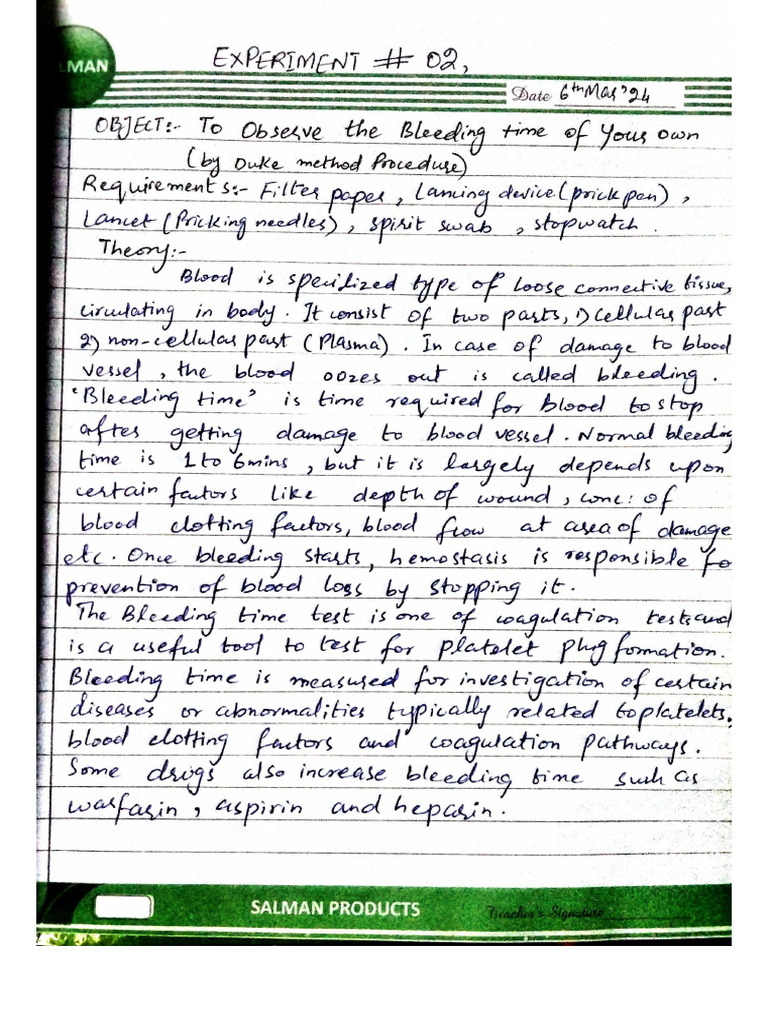 LMAN
EXPERIMENT # 02,
Date 6th Mar '24
OBJECT:- To Observe the Bleeding time of Your Own
(by Duke method Procedure)
Requirements:- Filter paper, Lancing device (prick pen),
Lancet (Pricking needles), spirit swab, stopwatch.
Theory:-
Blood is specilized type of loose connective tissue,
circulating in body. It consist of two parts, 1) cellular part
2) non-cellular part (Plasma). In case of damage to blood
vessel, the blood oozes out is called bleeding.
'Bleeding time' is time required for blood to stop
after getting damage to blood vessel. Normal bleeding
time is 1 to 6mins, but it is largely depends upon
certain factors like depth of wound, conc: of
blood clotting factors, blood flow at area of damage
etc. Once bleeding starts, hemostasis is responsible fo
prevention of blood loss by stopping it.
The Bleeding time test is one of coagulation tests and
is a useful tool to test for platelet plug formation.
Bleeding time is measured for investigation of certain
diseases or abnormalities typically related to platelets,
blood clotting factors and coagulation pathways.
Some drugs also increase bleeding time such as
warfarin, aspirin and heparin.
SALMAN PRODUCTS
Teacher's Signature